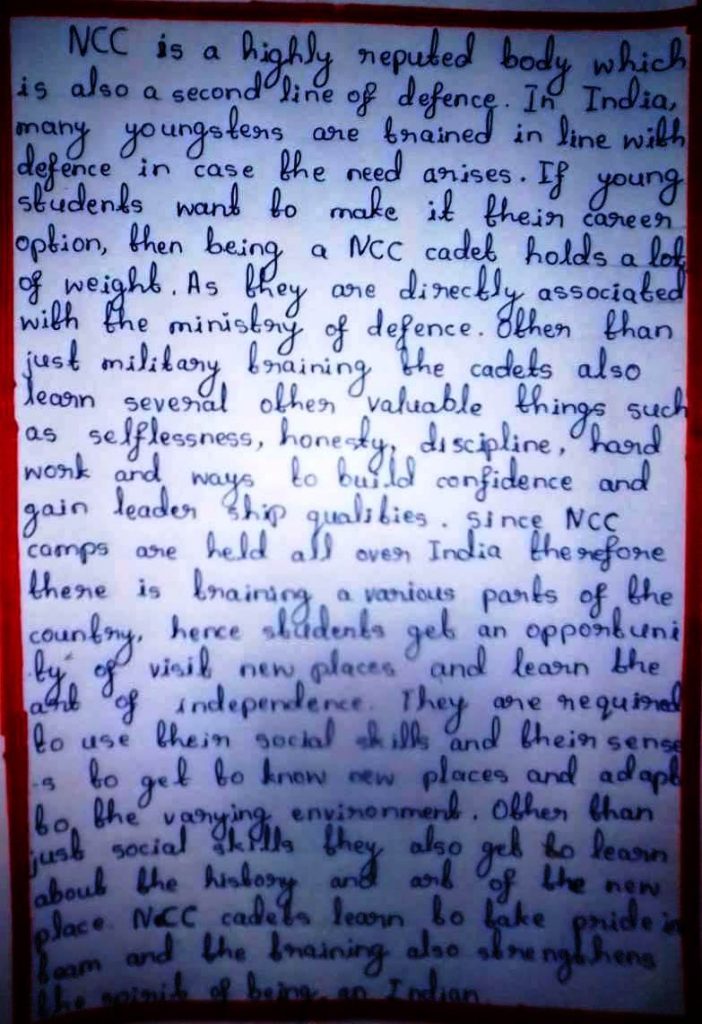 NCC is a highly reputed body which
is also a second line of defence. In India,
many youngsters are trained in line with
defence in case the need arises. If young
students want to make it their career
option, then being a NCC cadet holds a lot
of weight. As they are directly associated
with the ministry of defence. Other than
just military training the cadets also
learn several other valuable things such
as selflessness, honesty, discipline, hard
work and ways to build confidence and
gain leader ship qualities. Since NCC
camps are held all over India therefore
there is training a various parts of the
country, hence students get an opportuni
ty of visit new places and learn the
art of independence. They are required
to use their social skills and their sense
-s to get to know new places and adapt
to the varying environment. Other than
just social skills they also get to learn
about the history and art of the new
place. NCC cadets learn to take pride in
team and the training also strengthens
the spirit of being an Indian.